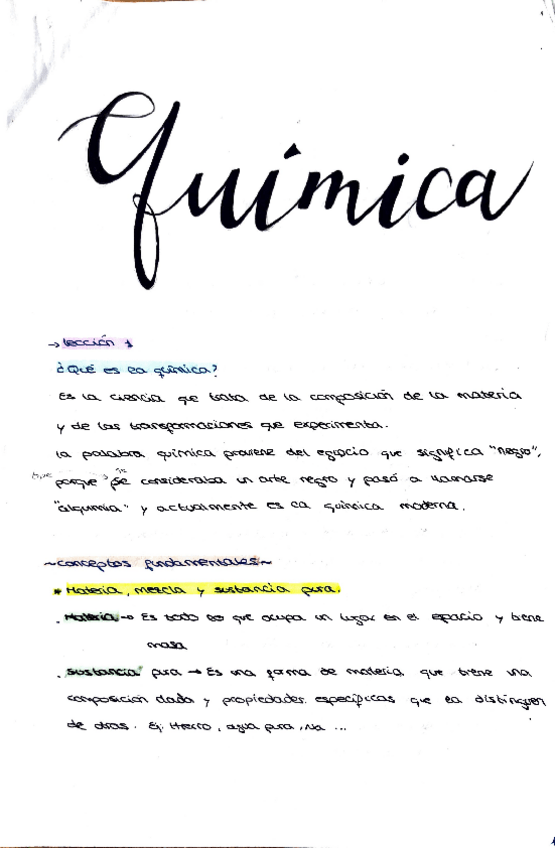 Química
→ Lección 1
¿Qué es la química?
Es la ciencia que trata de la composición de la materia
y de las transformaciones que experimenta.
La palabra química proviene del egipcio que significa "negro",
porque se consideraba un arte negro y pasó a llamarse
"alquimia" y actualmente es la química moderna.
~conceptos fundamentales~
* Materia, mezcla y sustancia pura.
. Materia → Es todo lo que ocupa un lugar en el espacio y tiene
masa
. Sustancia pura → Es una forma de materia que tiene una
composición dada y propiedades específicas que la distinguen
de otras. Ej: Hierro, agua pura, Na ...